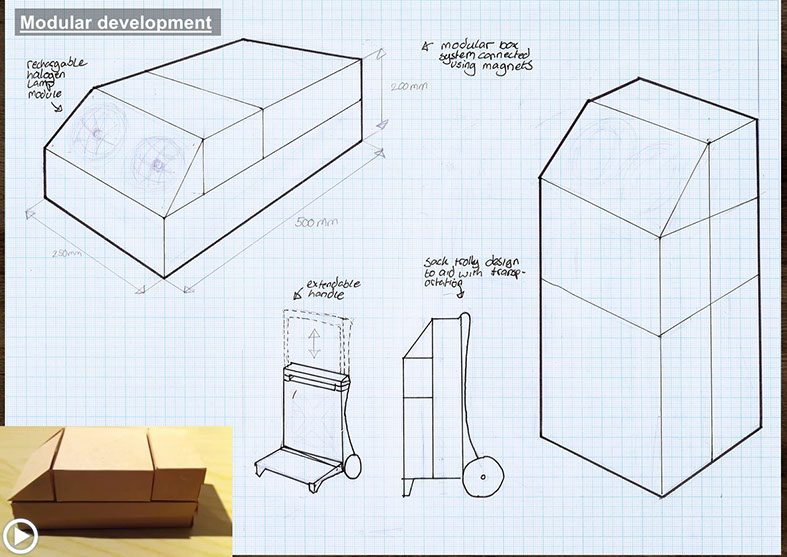 Modular development
rechargable
halogen
lamp
module
modular box
system connected
using magnets
200mm
500mm
250mm
extendable
handle
sack trolly design
to aid with transp-
ortation